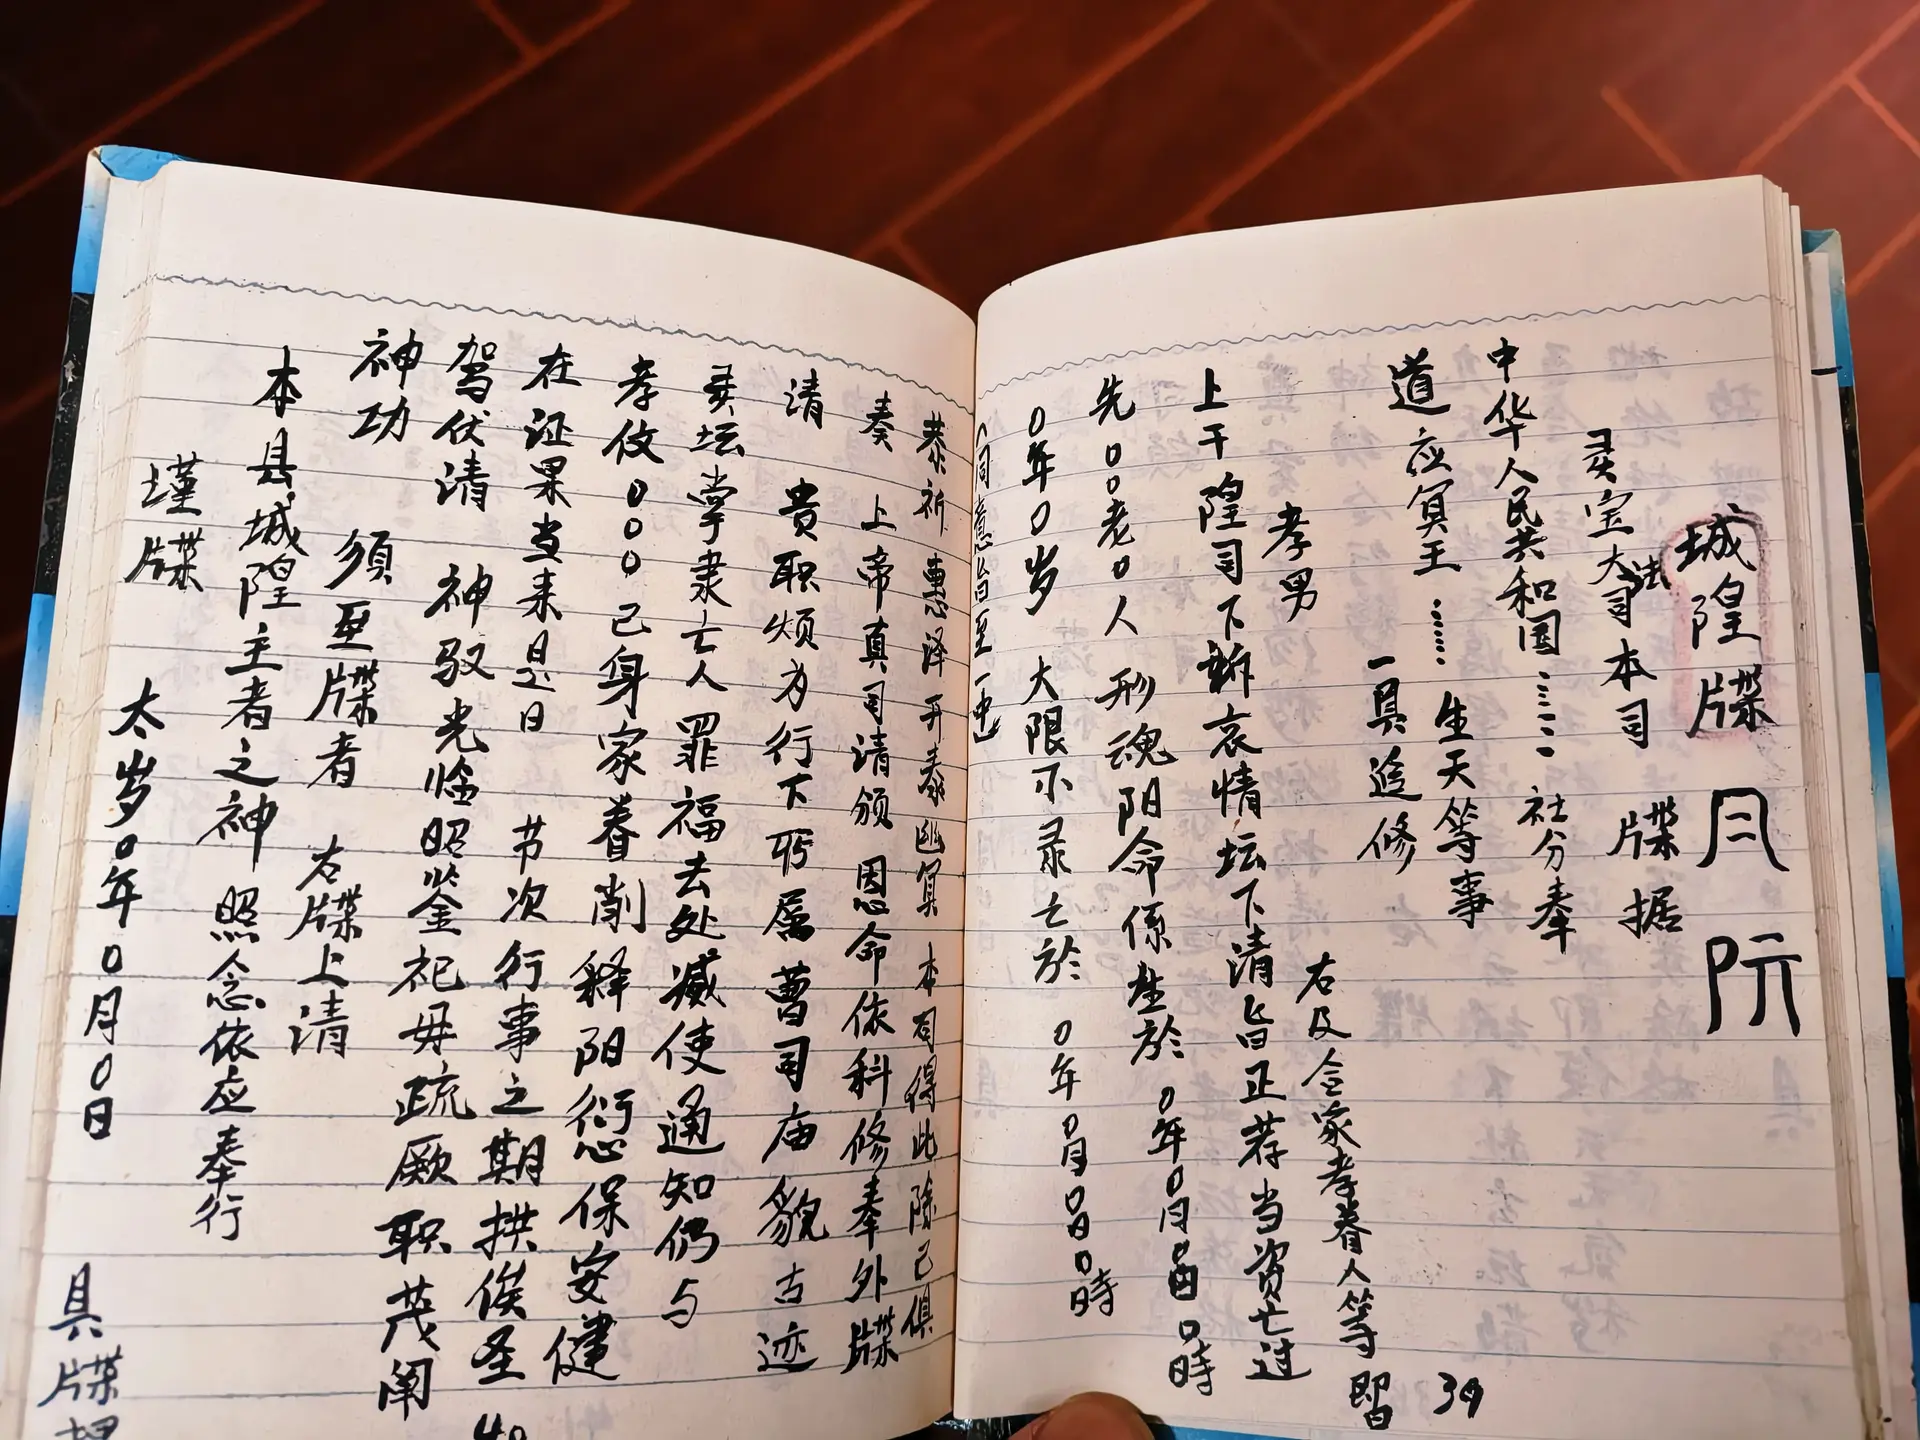 城隍牒
灵宝大法司本司 牒 据
中华人民共和国……社分奉
道 应冥王……生天等事
一具追修
孝男 右及合家孝眷人等 即日
上干隍司下新哀情坛下清旨正荐当资亡过
先〇〇老〇人 形魂阳命係生於 〇年〇月〇日〇時
〇年〇岁 大限不录亡於 〇年〇月〇日〇時
39
恭祈惠泽再泰幽冥 本司得此除已俱
奏 上帝真司请颁 恩命依科修奉外牒
请 贵职烦为行下所属曹司庙貌古迹
灵坛掌隶亡人罪福去处臧使通知仍与
孝侫〇〇〇已身家眷削释阳愆保安健
在证果当来是日 节次行事之期拱俟圣
驾伏请 神驭光临昭鉴祀毋疏厥职茂阐
神功 须至牒者 右牒上请
本县城隍主者之神 照念依应奉行
墐牒 太岁〇年〇月〇日
具牒
40